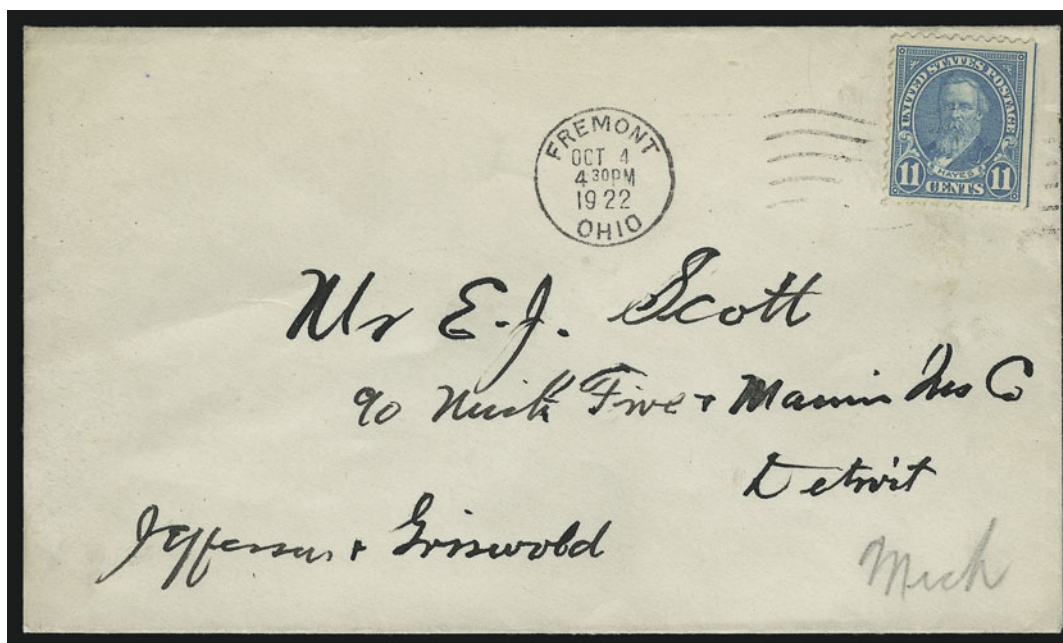 FREMONT
OCT 4
4 30PM
1922
OHIO
UNITED STATES POSTAGE
HAYES
11 CENTS 11
Mr E. J. Scott
% Mich Fire + Marine Ins Co
Detroit
Jefferson + Griswold
Mich